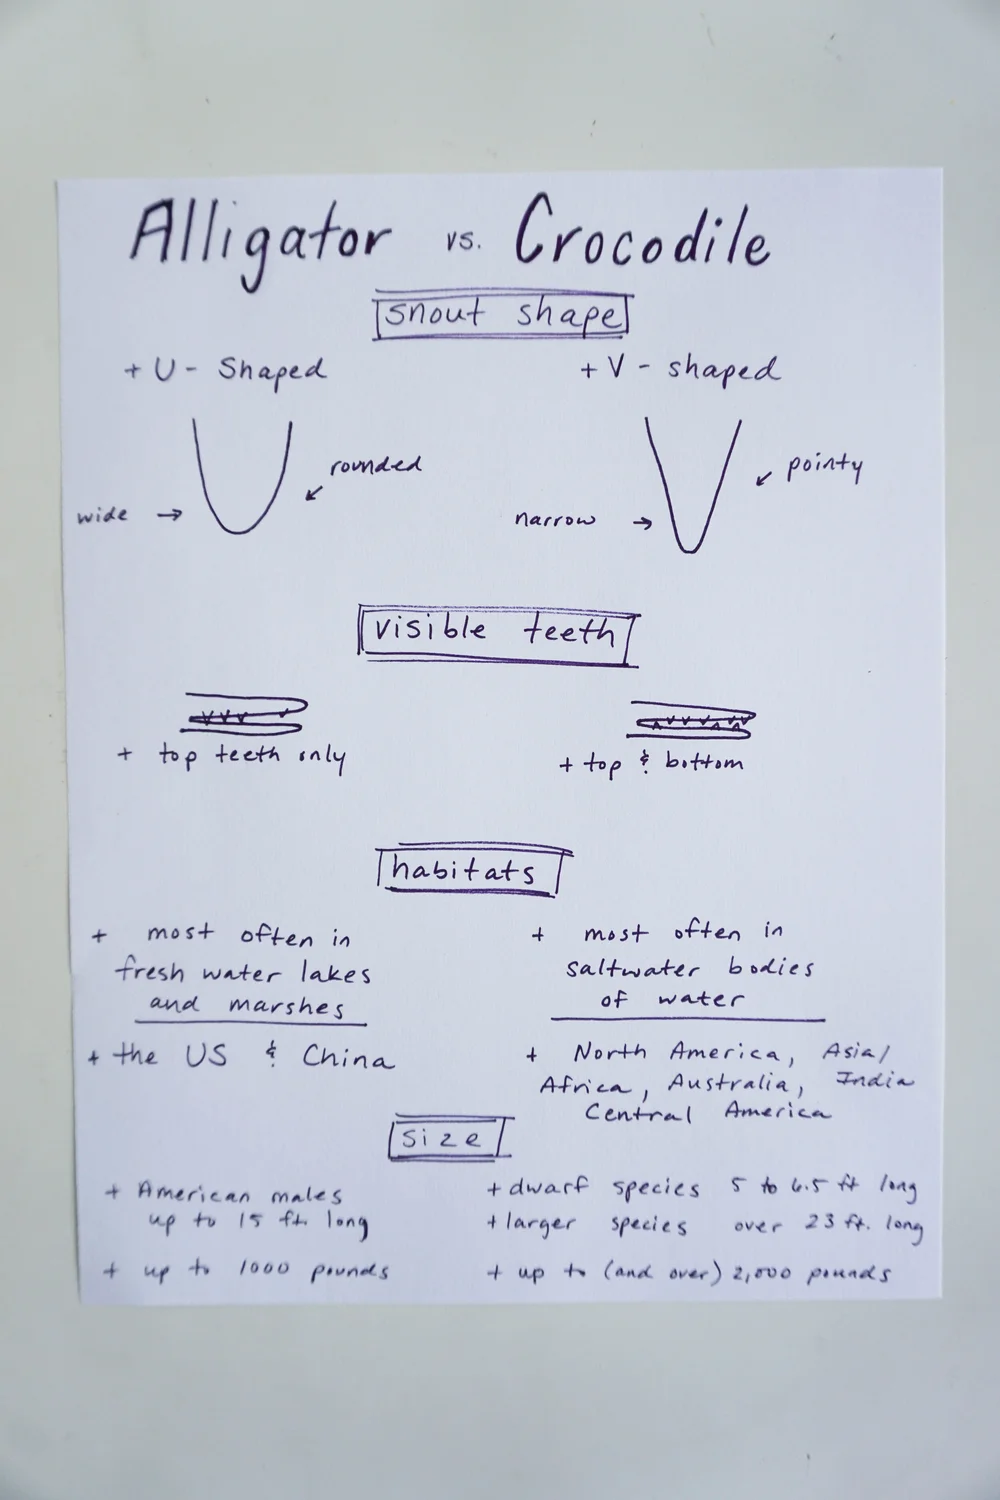 Alligator vs. Crocodile
snout shape
+ U - Shaped
+ V - shaped
rounded
wide →
pointy
narrow →
visible teeth
+ top teeth only
+ top & bottom
habitats
+ most often in
fresh water lakes
and marshes
+ the US & China
+ most often in
saltwater bodies
of water
+ North America, Asia/
Africa, Australia, India
Central America
size
+ American males
up to 15 ft. long
+ up to 1000 pounds
+ dwarf species 5 to 6.5 ft long
+ larger species over 23 ft. long
+ up to (and over) 2,000 pounds